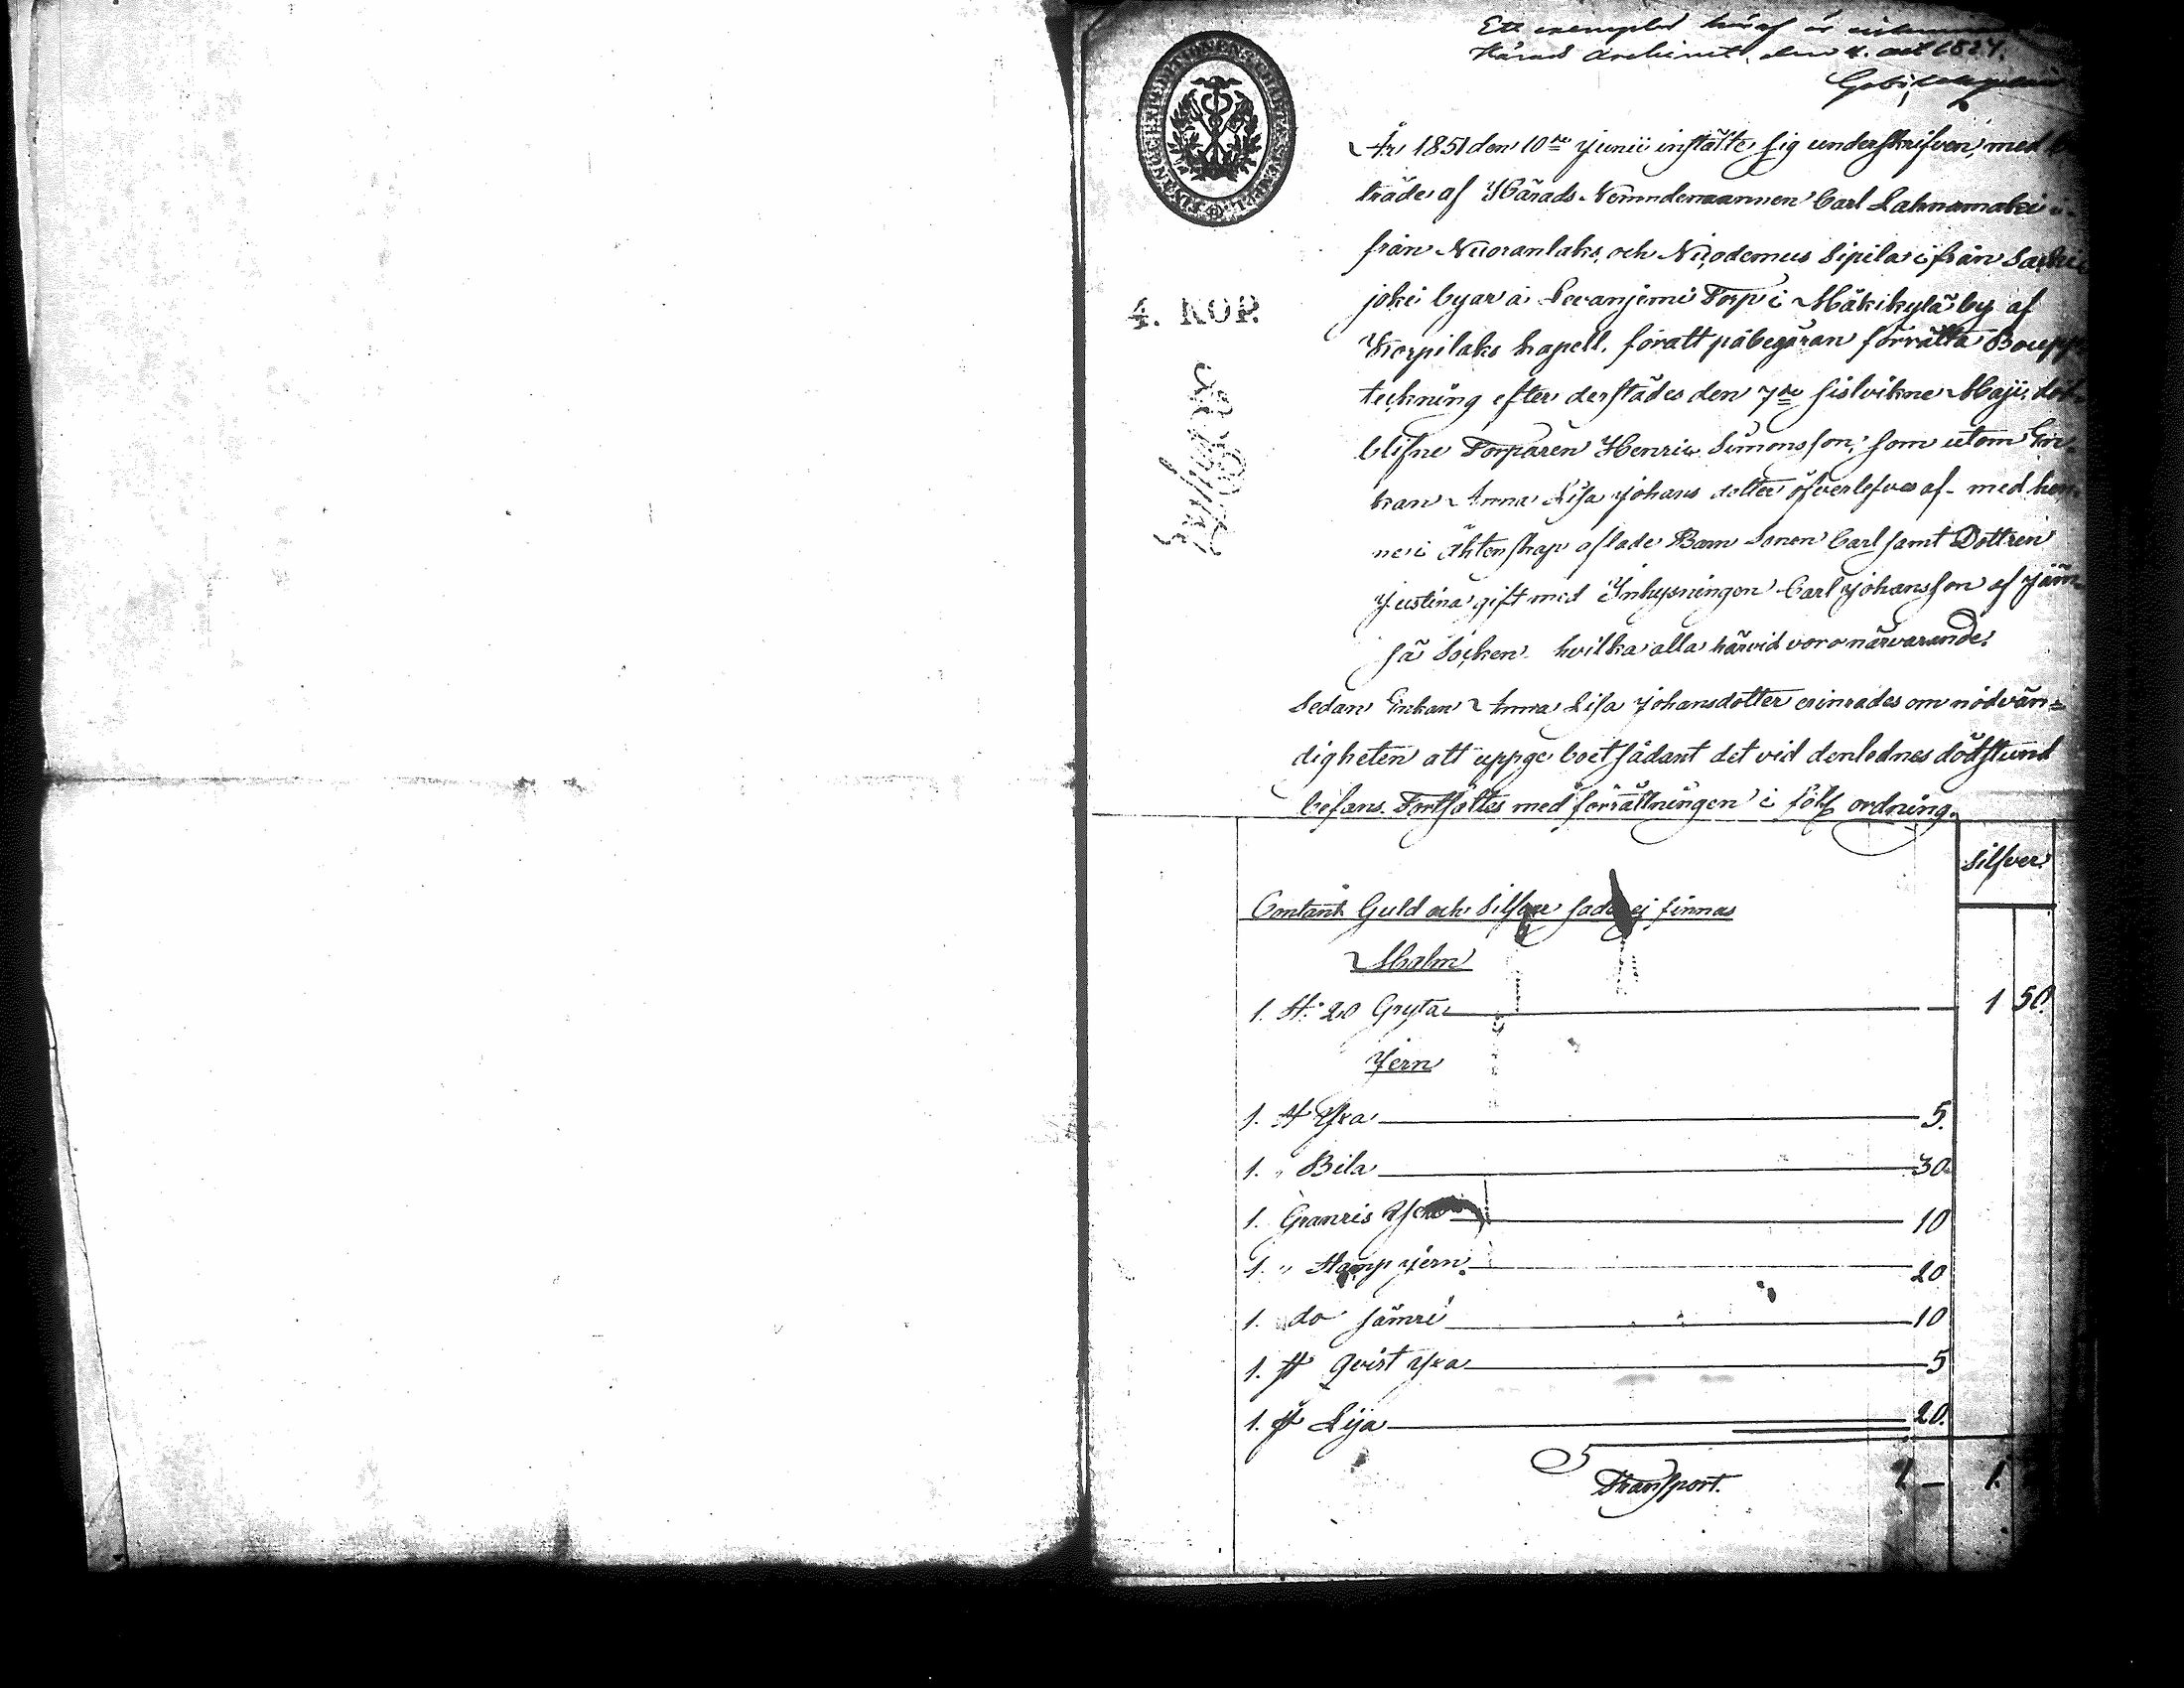 Ett exemplar häraf är
Härads Archivet, den 4.
4. KOP.
År 1851 den 10de Junii instälte sig underskrifven, med
träde af Härads Nemndemannen Carl Lahnamäki i
från Nuoranlaks, och Nicodemus Sipilä ifrån Saaki
joki byar å Levanjemi Torp i Mäkikylä by af
Korpilaks kapell,föratt påbegäran förrätta Boupp
teckning efter derstädes den 7de sistvikne Maji, död
blifne Torparen Henric Simonsson, som utom En
kan Anna Lisa Johans dotter öfverlefves af med hen
ne i Äktenskap aflade Barn Sonen Carl samt Dottren
Justina gift med Inhysningen Carl Johansson af Jäm
sä Socken hvilka alla härvid voro närvarande.
Sedan Enkan Anna Lisa Johansdotter erinrades om nödvän=
digheten att uppge boet sådant det vid den lednes dödstund
befans. Fortsattes med förrättningen i följ ordning.
Silfver
Contant Guld och Silfver sades ej finnas
Malm
1. St: 20 Gryta 1 50.
Jern
1. St Yxa 5.
1. " Bila 30
1. Granris Yxa 10
1. " Stamp jern 20
1. do sämre 10
1. St Qvist yxa 5
1. St Lija 20.
Transport. 1 — 1.